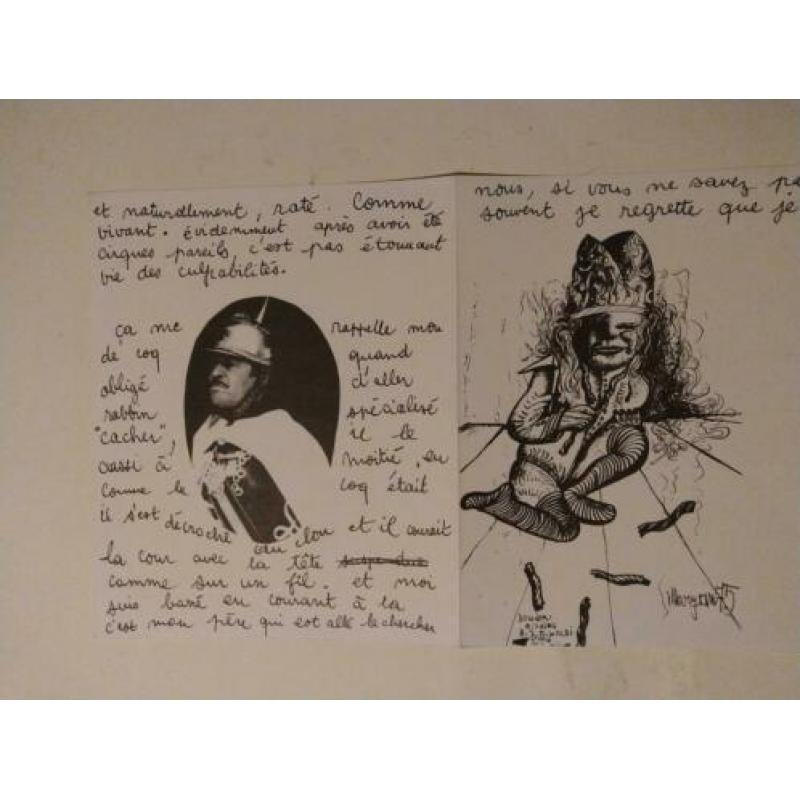 et naturellement, raté. Comme
vivant. évidemment après avoir été
cirques pareils, c'est pas étonnant
vie des culpabilités.
ça me rappelle mon
de coq quand
obligé d'aller
rabbin spécialisé
"cacher", il le
aussi à moitié, en
comme le coq était
il s'est décroché du clou et il courait
la cour avec la tête suspendue
comme sur un fil. et moi
suis barré en courant à la
c'est mon père qui est allé le chercher
nous, si vous ne savez pa
souvent je regrette que je
75